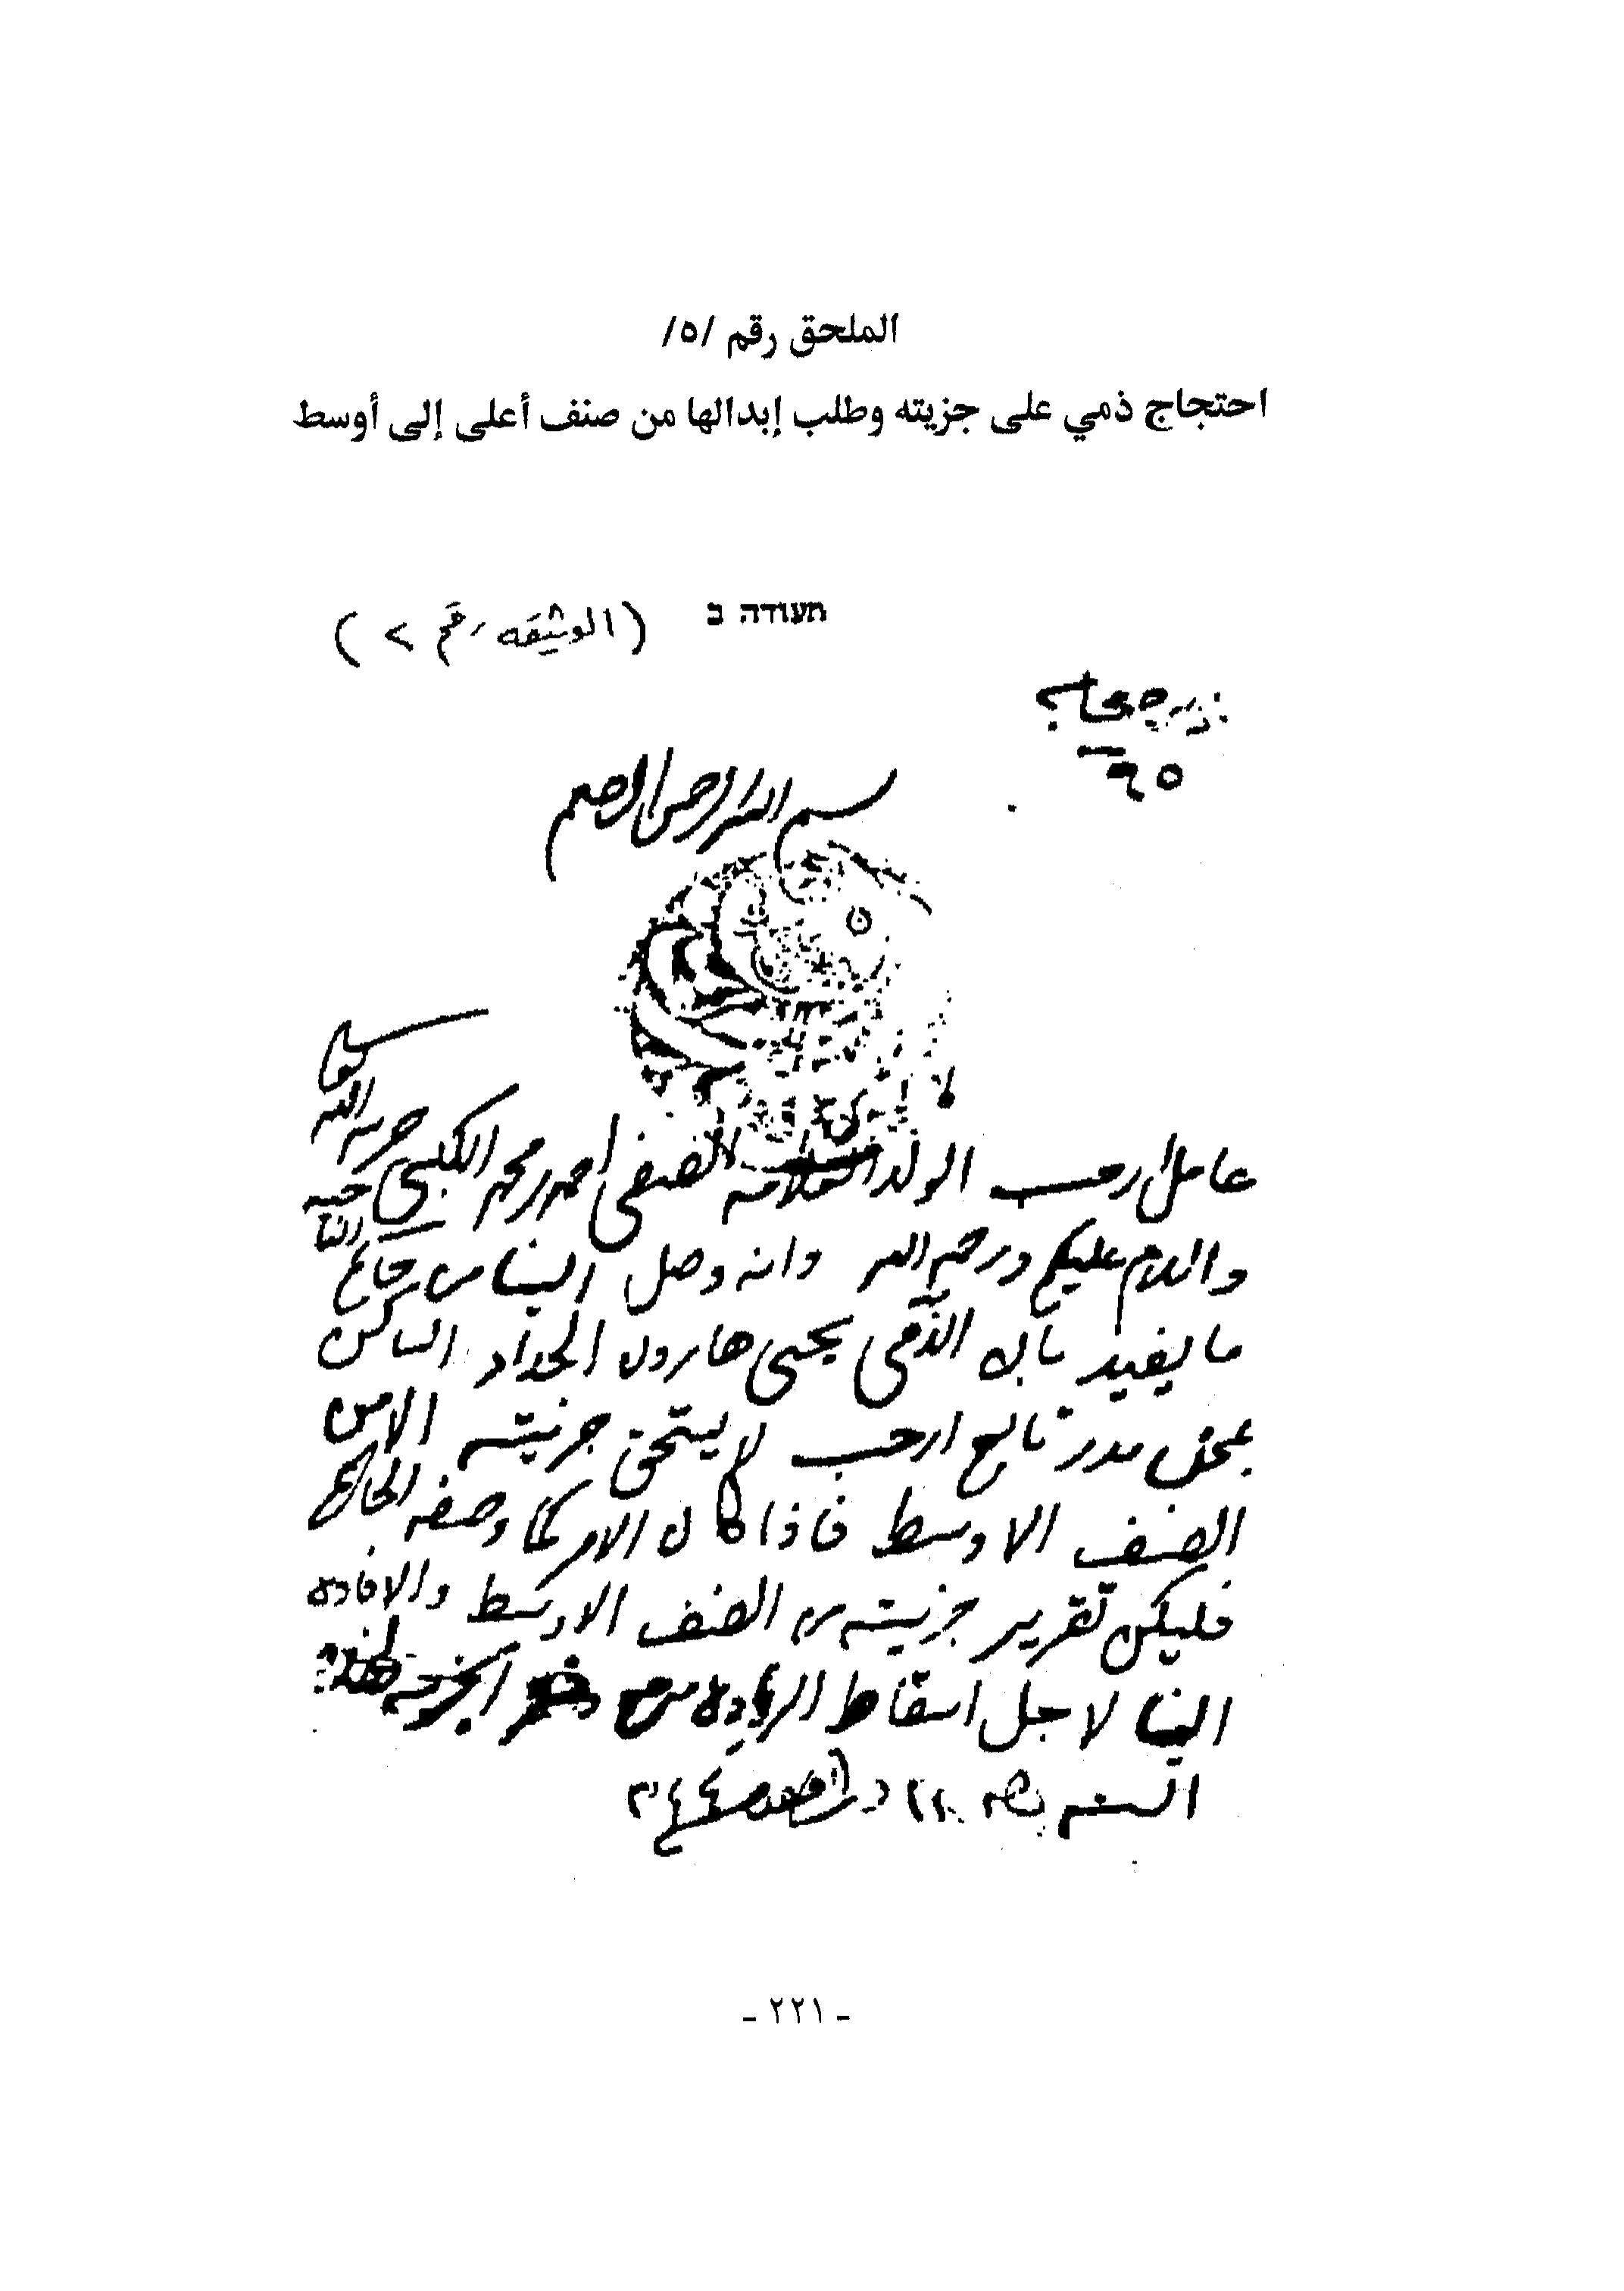 الملحق رقم /٥/
احتجاج ذمي على جزيته وطلب إبدالها من صنف أعلى إلى أوسط
תעודה ב (الوثيقه رقم ٢)
٦٥
بسم الله الرحمن الرحيم
عامل ارحب الولد العلامه الصفي احمد بن محمد الكبسي حرسه الله
والسلام عليكم ورحمة الله وانه وصل الينا من حاخام
ما يفيد بان الذمي يحيى هارون الحداد الساكن
بمحل مدر تابع ارحب لا يستحق جزيته الا من
الصنف الاوسط فاذا كان الامر كما وصفه الحاخام
فليكن تقرير جزيته من الصنف الاوسط والافاده
الينا لاجل اسقاط الزياده من
السنه
- ٢٢١ -